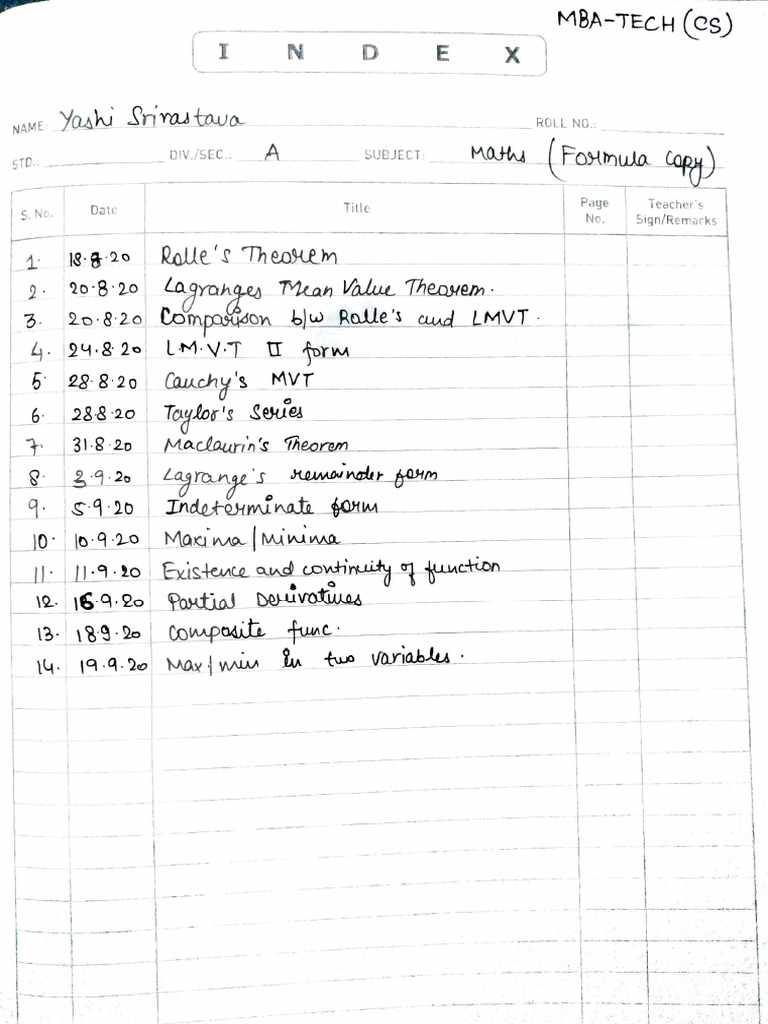 MBA-TECH (CS)
I N D E X
NAME: Yashi Srivastava ROLL NO.:
STD.: DIV./SEC.: A SUBJECT: Maths (Formula copy)
S. No. Date Title Page No. Teacher's Sign/Remarks
1. 18.8.20 Rolle's Theorem
2. 20.8.20 Lagranges Mean Value Theorem.
3. 20.8.20 Comparison b/w Rolle's and LMVT.
4. 24.8.20 L.M.V.T II form
5. 28.8.20 Cauchy's MVT
6. 28.8.20 Taylor's Series
7. 31.8.20 Maclaurin's Theorem
8. 3.9.20 Lagrange's remainder form
9. 5.9.20 Indeterminate form
10. 10.9.20 Maxima/Minima
11. 11.9.20 Existence and continuity of function
12. 16.9.20 Partial Derivatives
13. 18.9.20 Composite func.
14. 19.9.20 Max/min in two variables.